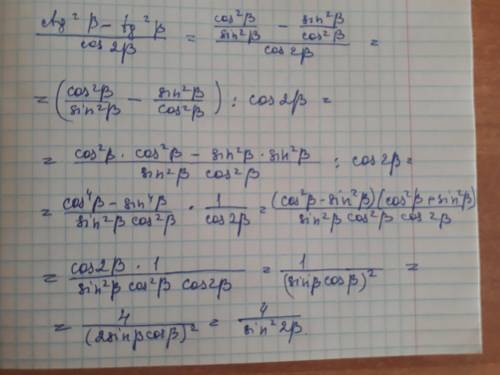 (ctg²β - tg²β)/(cos2β) = (cos²β/sin²β - sin²β/cos²β)/(cos2β) =
= (cos²β/sin²β - sin²β/cos²β) : cos2β =
= (cos²β · cos²β - sin²β · sin²β)/(sin²β cos²β) : cos2β =
= (cos⁴β - sin⁴β)/(sin²β cos²β) · 1/(cos2β) = ((cos²β - sin²β)(cos²β + sin²β))/(sin²β cos²β cos2β)
= (cos2β · 1)/(sin²β cos²β cos2β) = 1/(sinβ cosβ)² =
= 4/(2sinβ cosβ)² = 4/(sin²2β)